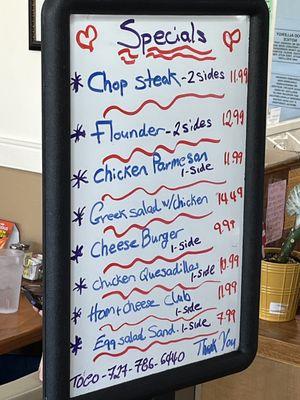 Specials
* Chop steak - 2 sides 11.99
* Flounder - 2 sides 12.99
* Chicken Parmesan 11.99
1-side
* Greek salad w/chicken 14.49
* Cheese Burger 9.99
1-side
* chicken Quesadillas 10.99
1-side
* Ham & cheese Club 11.99
1-side
* Egg salad Sand. 1-side 7.99
TOGO - 727-786-6440 Thank You